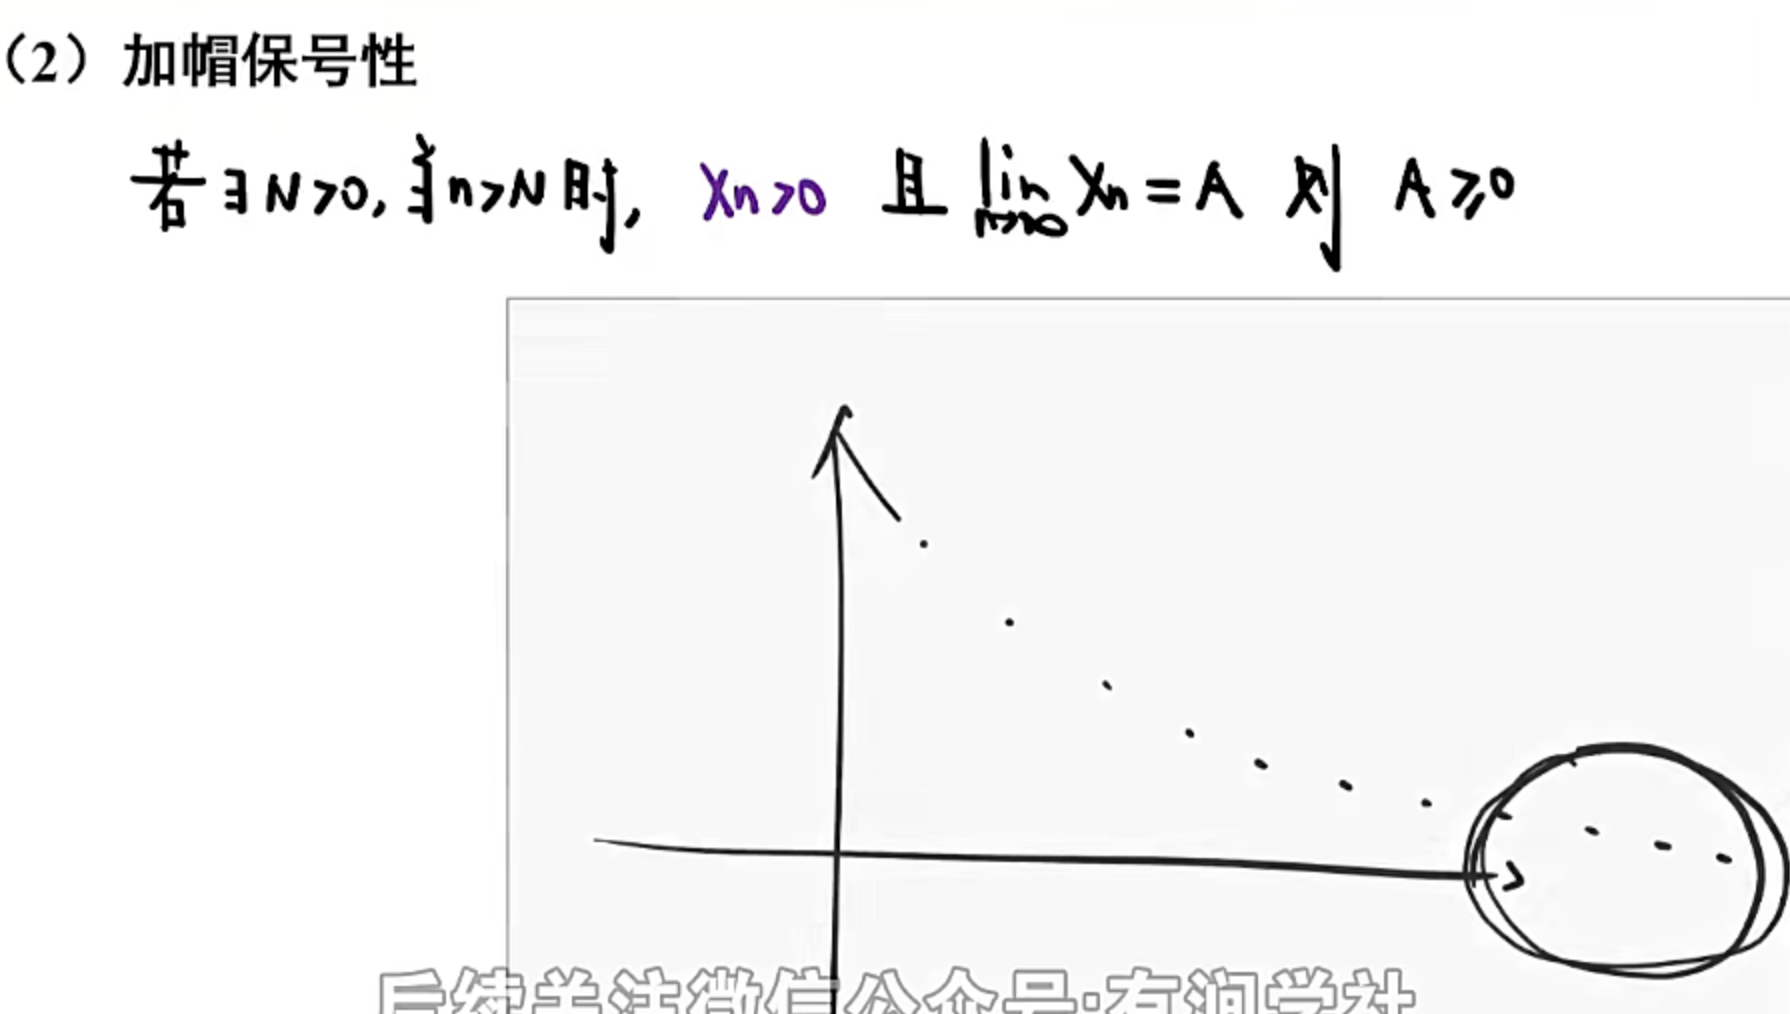 （2）加帽保号性
若∃N>0,当n>N时, Xn>0 且 lim n→∞ Xn=A 则 A≥0
后续关注微信公众号:有润学社